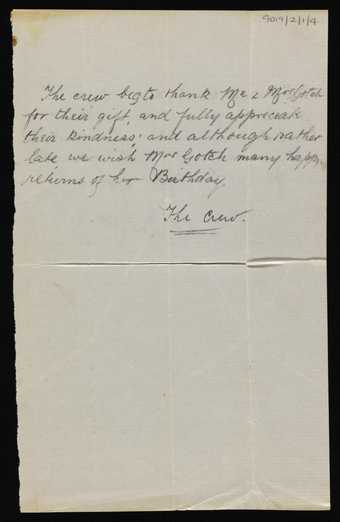 9019/2/1/4
The crew beg to thank Mr & Mrs Gotch
for their gift, and fully appreciate
their kindness; and although rather
late we wish Mrs Gotch many happy
returns of her Birthday.
The Crew.